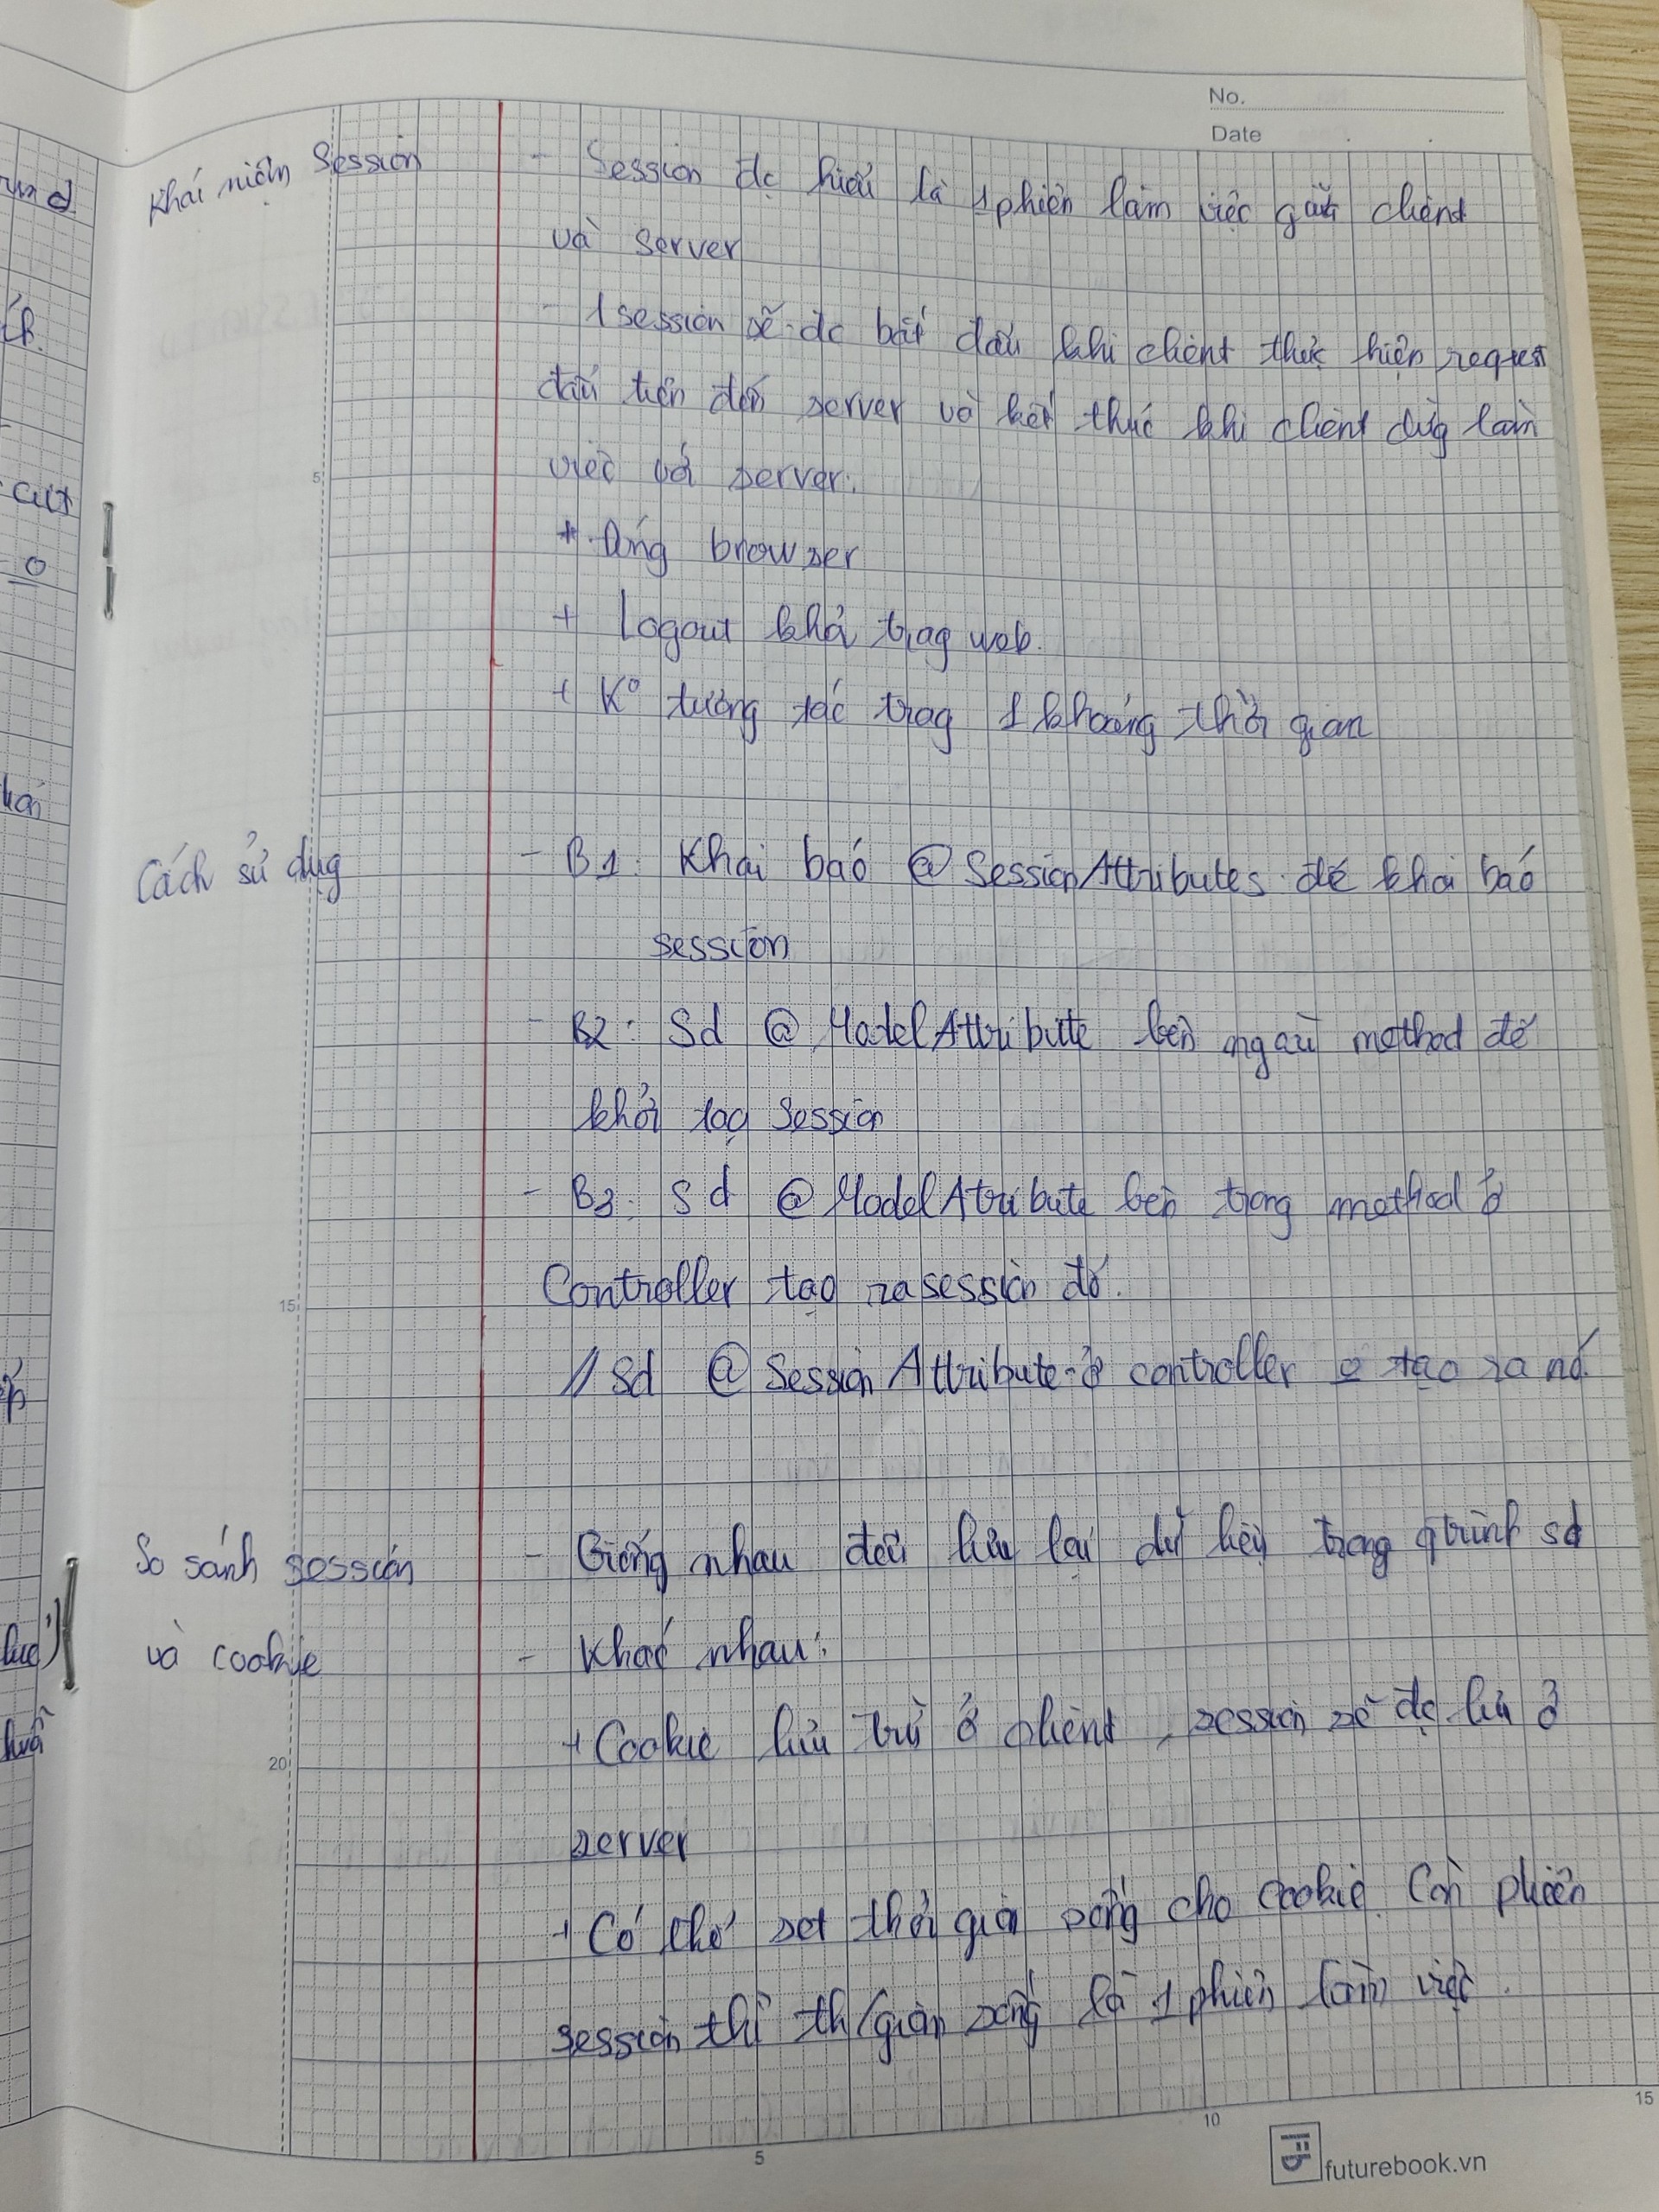 No.
Date
Khái niệm Session
- Session đc hiểu là 1 phiên làm việc giữa client
và server
- 1 session sẽ đc bắt đầu khi client thực hiện request
đầu tiên đến server và kết thúc khi client dừg làm
việc với server.
+ Đóng browser
+ Logout khỏi trag web.
+ K° tương tác trog 1 khoảng thời gian
Cách sử dụg
- B1: Khai báo @SessionAttributes để khai báo
session
- B2: Sd @ModelAttribute bên ngoài method để
khởi tạo session
- B3: Sd @ModelAtribute bên trong method ở
Controller tạo ra session đó.
// Sd @Session Attribute ở controller o tạo ra nó.
So sánh session
và cookie
- Giống nhau đều lưu lại dữ liệu trong qtrình sd
- Khác nhau:
+ Cookie lưu trữ ở client, session sẽ đc lưu ở
server
+ Có thể set thời gian sống cho cookie. Còn phiên
session thì th/gian sống là 1 phiên làm việc.
5
15
20
5
10
15
futurebook.vn